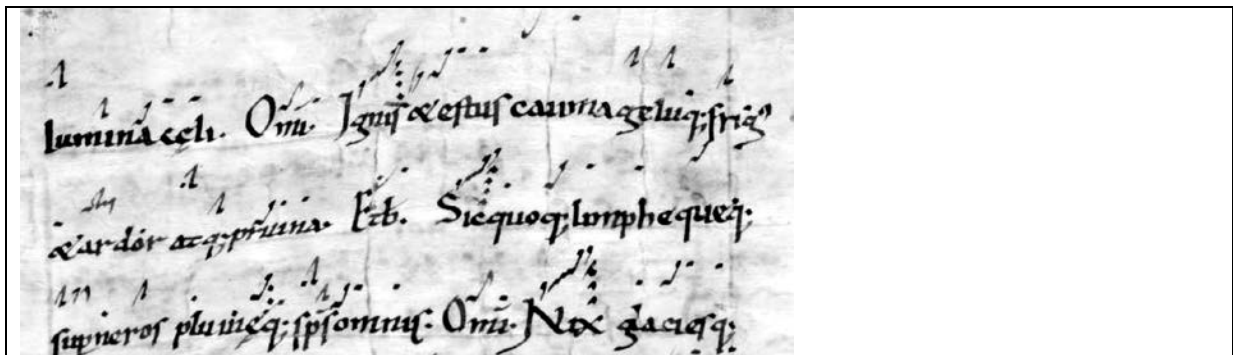 lumina cęli. Om̅i. Ignis & estus cauma geluq; frigꝰ
& ardor atq; pruina. Et b. Sic quoq; limphe queq;
supne ros pluuięq; sp̅s omnis. Om̅i. Nix glaciesq;